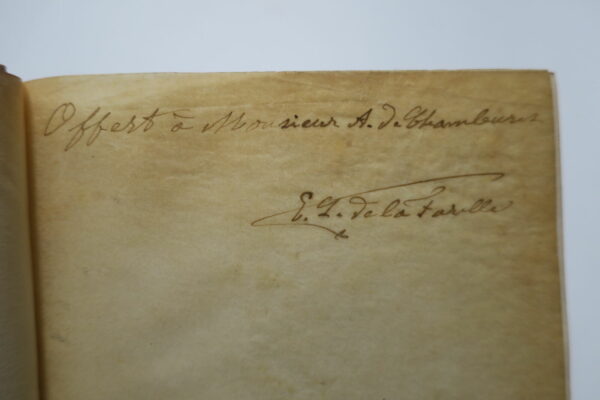 Offert à Monsieur A. de Chambeuret
E. L. de la Farelle